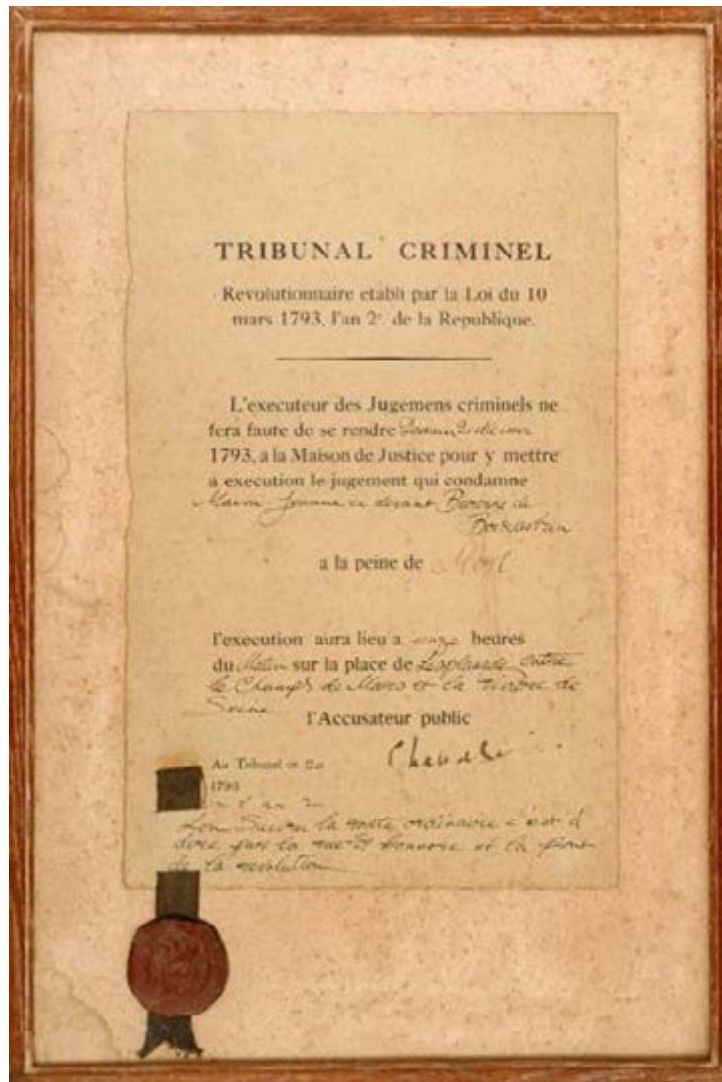 TRIBUNAL CRIMINEL
Revolutionnaire etabli par la Loi du 10
mars 1793, l'an 2e. de la Republique.
L'executeur des Jugemens criminels ne
fera faute de se rendre
1793, a la Maison de Justice pour y mettre
a execution le jugement qui condamne
ci devant
a la peine de Mort
l'execution aura lieu a onze heures
du Matin sur la place de Lesplanade entre
le Champs de Mars et la rivière de
Seine
l'Accusateur public
Au Tribunal ce 20
1793
l an 2
la route ordinaire c'est à
dire par la rue St honnore et la
de la revolution